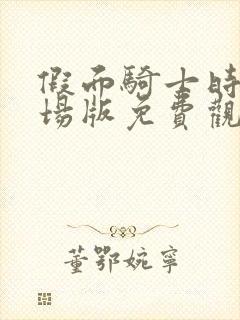 假面騎士時
場版免費觀
董鄂婉寧